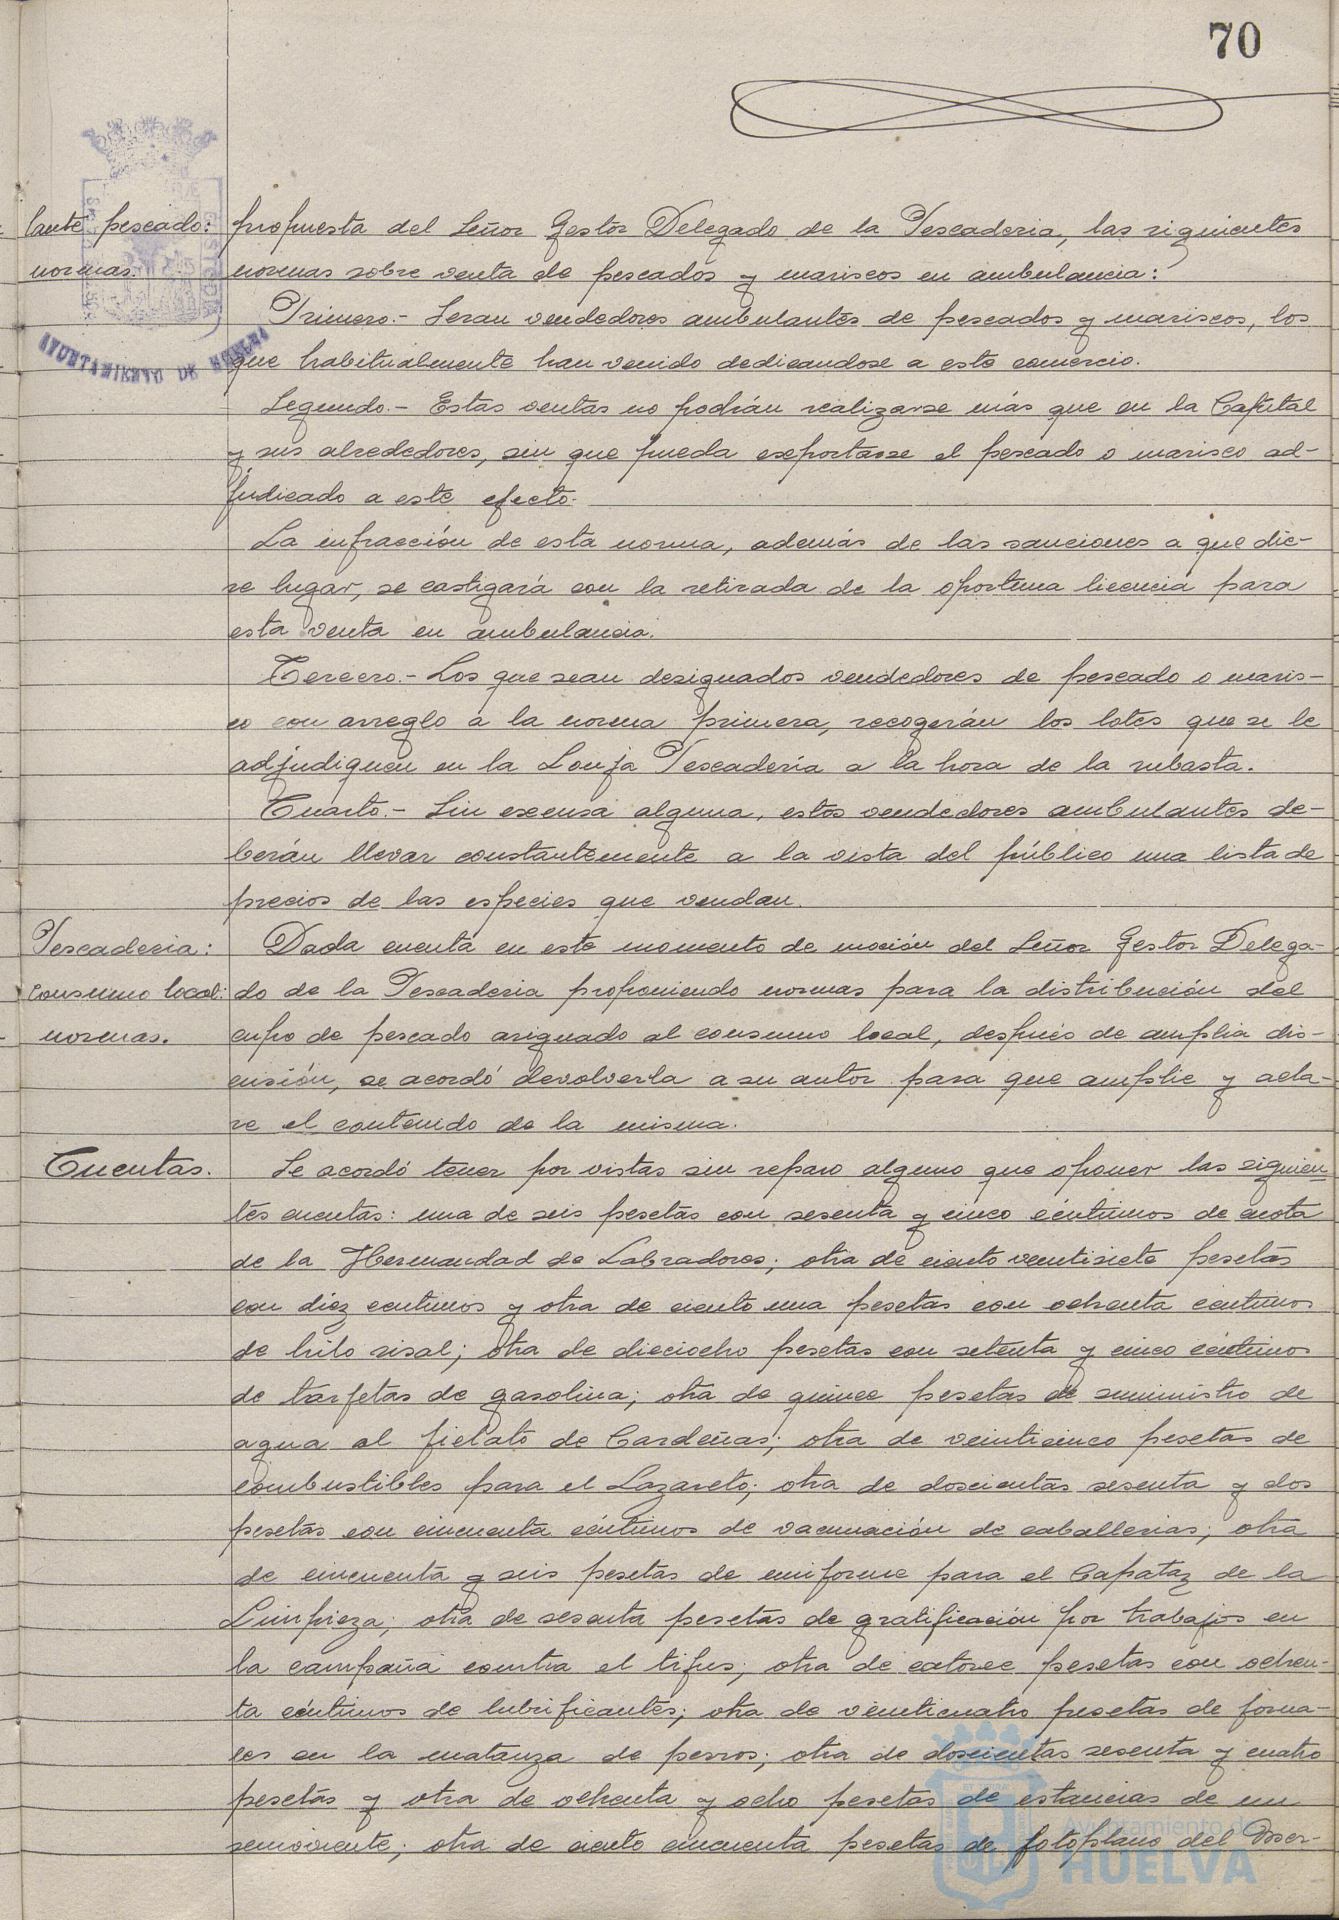 70
lante pescado:
normas.
AYUNTAMIENTO DE HUELVA
propuesta del Señor Gestor Delegado de la Pescaderia, las siguientes
normas sobre venta de pescados y mariscos en ambulancia:
Primero.- Seran vendedores ambulantes de pescados y mariscos, los
que habitualmente han venido dedicandose a este comercio.
Segundo.- Estas ventas no podrán realizarse más que en la Capital
y sus alrededores, sin que pueda exportarse el pescado o marisco ad-
judicado a este efecto.
La infracción de esta norma, además de las sanciones a que die-
re lugar, se castigará con la retirada de la oportuna licencia para
esta venta en ambulancia.
Tercero.- Los que sean designados vendedores de pescado o maris-
co con arreglo a la norma primera, recogerán los lotes que se le
adjudiquen en la Lonja Pescadería a la hora de la subasta.
Cuarto.- Sin excusa alguna, estos vendedores ambulantes de-
berán llevar constantemente a la vista del público una lista de
precios de las especies que vendan.
Pescaderia:
consumo local:
normas.
Dada cuenta en este momento de moción del Señor Gestor Delega-
do de la Pescaderia proponiendo normas para la distribución del
cupo de pescado asignado al consumo local, después de amplia dis-
cusión, se acordó devolverla a su autor para que amplie y acla-
re el contenido de la misma.
Cuentas.
Se acordó tener por vistas sin reparo alguno que oponer las siguien-
tes cuentas: una de seis pesetas con sesenta y cinco céntimos de cuota
de la Hermandad de Labradores; otra de ciento veintisiete pesetas
con diez centimos y otra de ciento una pesetas con ochenta centimos
de hilo sisal; otra de dieciocho pesetas con setenta y cinco céntimos
de tarjetas de gasolina; otra de quince pesetas de suministro de
agua al fielato de Cardeñas; otra de veinticinco pesetas de
combustibles para el Lazareto; otra de doscientas sesenta y dos
pesetas con cincuenta céntimos de vacunación de caballerias; otra
de cincuenta y seis pesetas de uniforme para el Capataz de la
Limpieza; otra de sesenta pesetas de gratificación por trabajos en
la campaña contra el tifus; otra de catorce pesetas con ochen-
ta céntimos de lubrificantes; otra de veinticuatro pesetas de jorna-
les en la matanza de perros; otra de doscientas sesenta y cuatro
pesetas y otra de ochenta y ocho pesetas de estancias de un
semoviente; otra de ciento cincuenta pesetas de fotoplano del Mer-
Ayuntamiento de
HUELVA